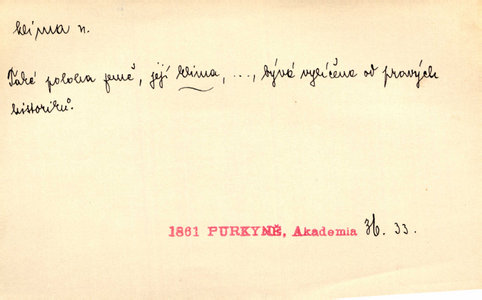 klima n.
Také poloha země, její klima, ..., bývá vylíčena od pravých
historiků.
1861 PURKYNĚ, Akademia 36. 33.